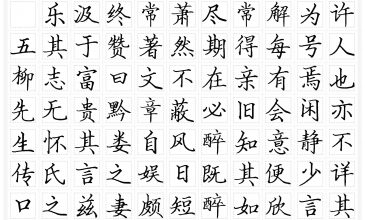 许人也亦不详其
为号焉闲静少言
解每有会意便欣
常得亲旧知其如
尽期在必醉既醉
萧然不蔽风日短
常著文章自娱颇
终赞曰黔娄之妻
汲于富贵其言兹
乐其志无怀氏之
五柳先生传口